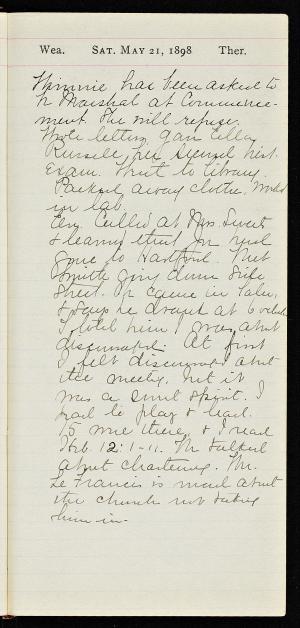 Wea. SAT. MAY 21, 1898 Ther.
Minnie has been asked to
be Marshal at Commence-
ment. She will refuse.
Wrote letters, gave Ellen
Russell her second hist.
Exam. Went to library.
Packed away clothes. Worked
in lab.
Eve. Called at Mrs.
& learned that Jn had
gone to Hartford. Met
Smith going down State
Street. He came in later,
& says he at 6 o'clock
I told him I was about
discouraged. At first
I felt discouraged about
the meeting, but it
was a spirit. I
had to play & lead.
15 were there, & I read
Heb. 12:1-11. Mr talked
about chartering. Mr.
Le Francis is mad about
the church not taking
him in.